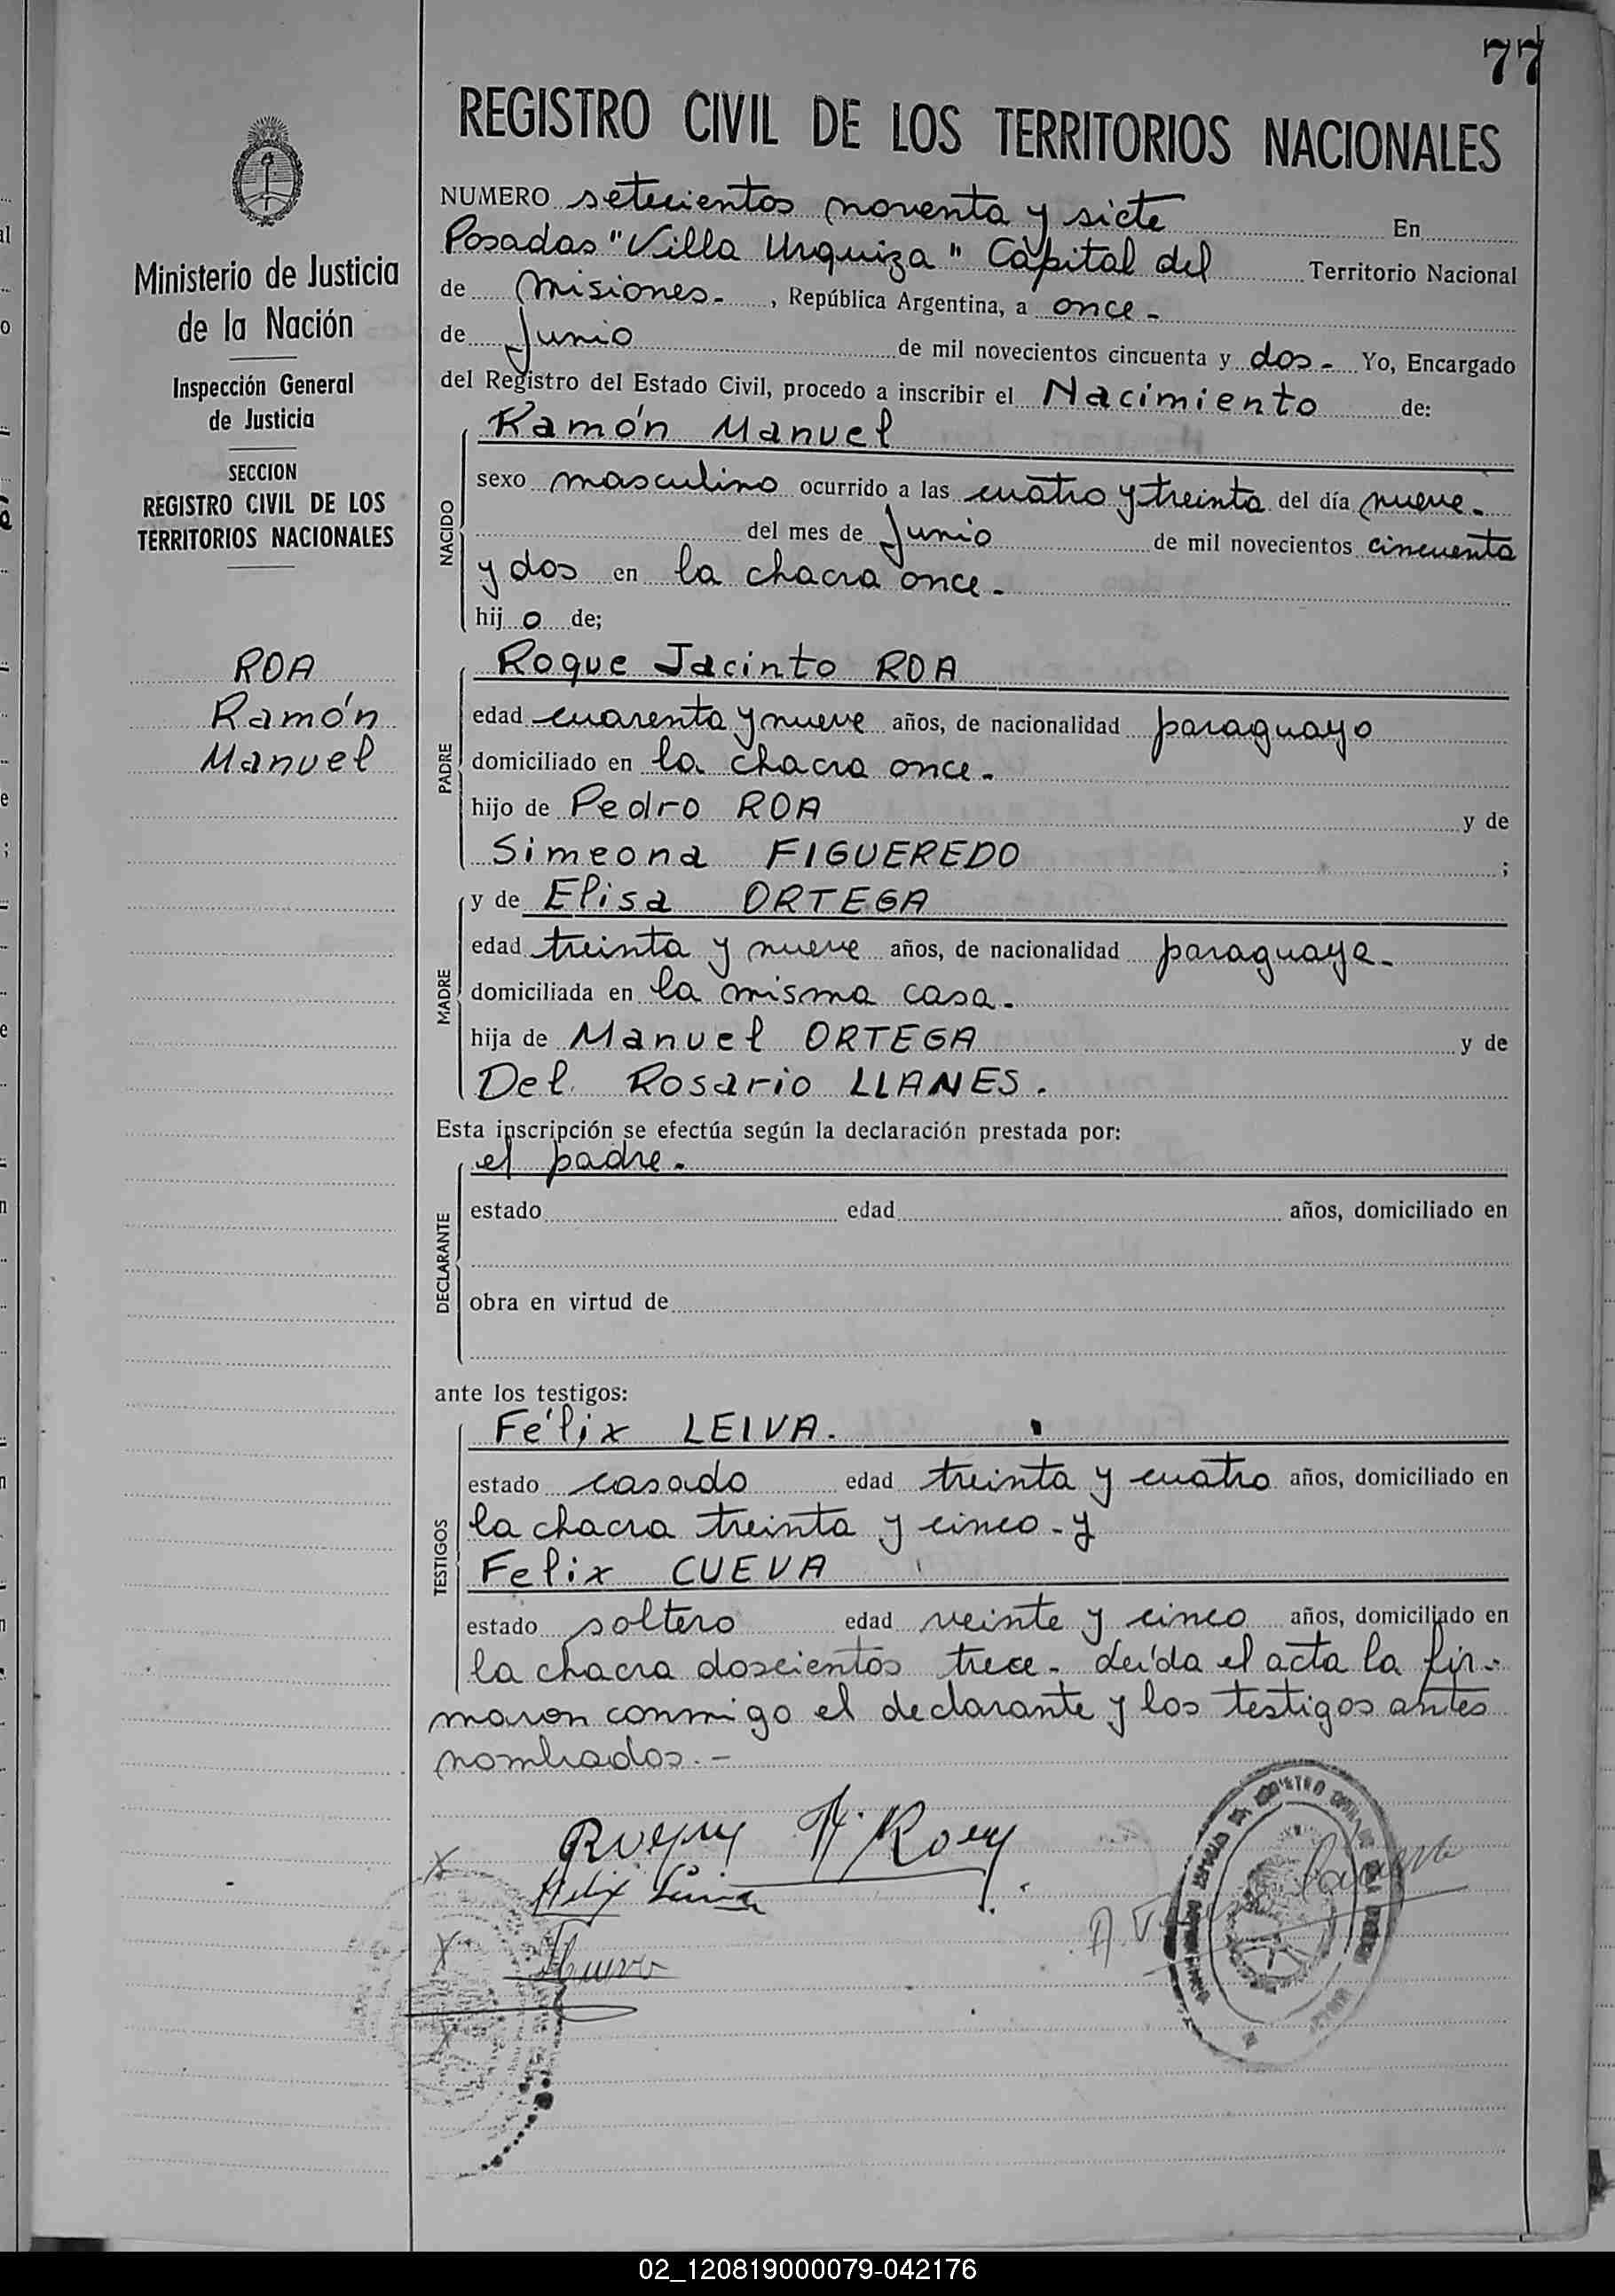 77
REGISTRO CIVIL DE LOS TERRITORIOS NACIONALES
Ministerio de Justicia
de la Nación
Inspección General
de Justicia
SECCION
REGISTRO CIVIL DE LOS
TERRITORIOS NACIONALES
ROA
Ramón
Manuel
NUMERO setecientos noventa y siete En
Posadas "Villa Urquiza" Capital del Territorio Nacional
de Misiones- , República Argentina, a once-
de Junio de mil novecientos cincuenta y dos- Yo, Encargado
del Registro del Estado Civil, procedo a inscribir el Nacimiento de:
NACIDO
Ramón Manuel
sexo masculino ocurrido a las cuatro y treinta del día nueve-
del mes de Junio de mil novecientos cincuenta
y dos en la chacra once-
hij o de;
PADRE
Roque Jacinto ROA
edad cuarenta y nueve años, de nacionalidad paraguayo
domiciliado en la chacra once-
hijo de Pedro ROA y de
Simeona FIGUEREDO ;
MADRE
y de Elisa ORTEGA
edad treinta y nueve años, de nacionalidad paraguaya-
domiciliada en la misma casa-
hija de Manuel ORTEGA y de
Del Rosario LLANES.
Esta inscripción se efectúa según la declaración prestada por:
DECLARANTE
el padre-
estado edad años, domiciliado en
obra en virtud de
ante los testigos:
TESTIGOS
Félix LEIVA.
estado casado edad treinta y cuatro años, domiciliado en
la chacra treinta y cinco- y
Felix CUEVA
estado soltero edad veinte y cinco años, domiciliado en
la chacra doscientos trece- Leída el acta la fir-
maron conmigo el declarante y los testigos antes
nombrados.-
02_120819000079-042176